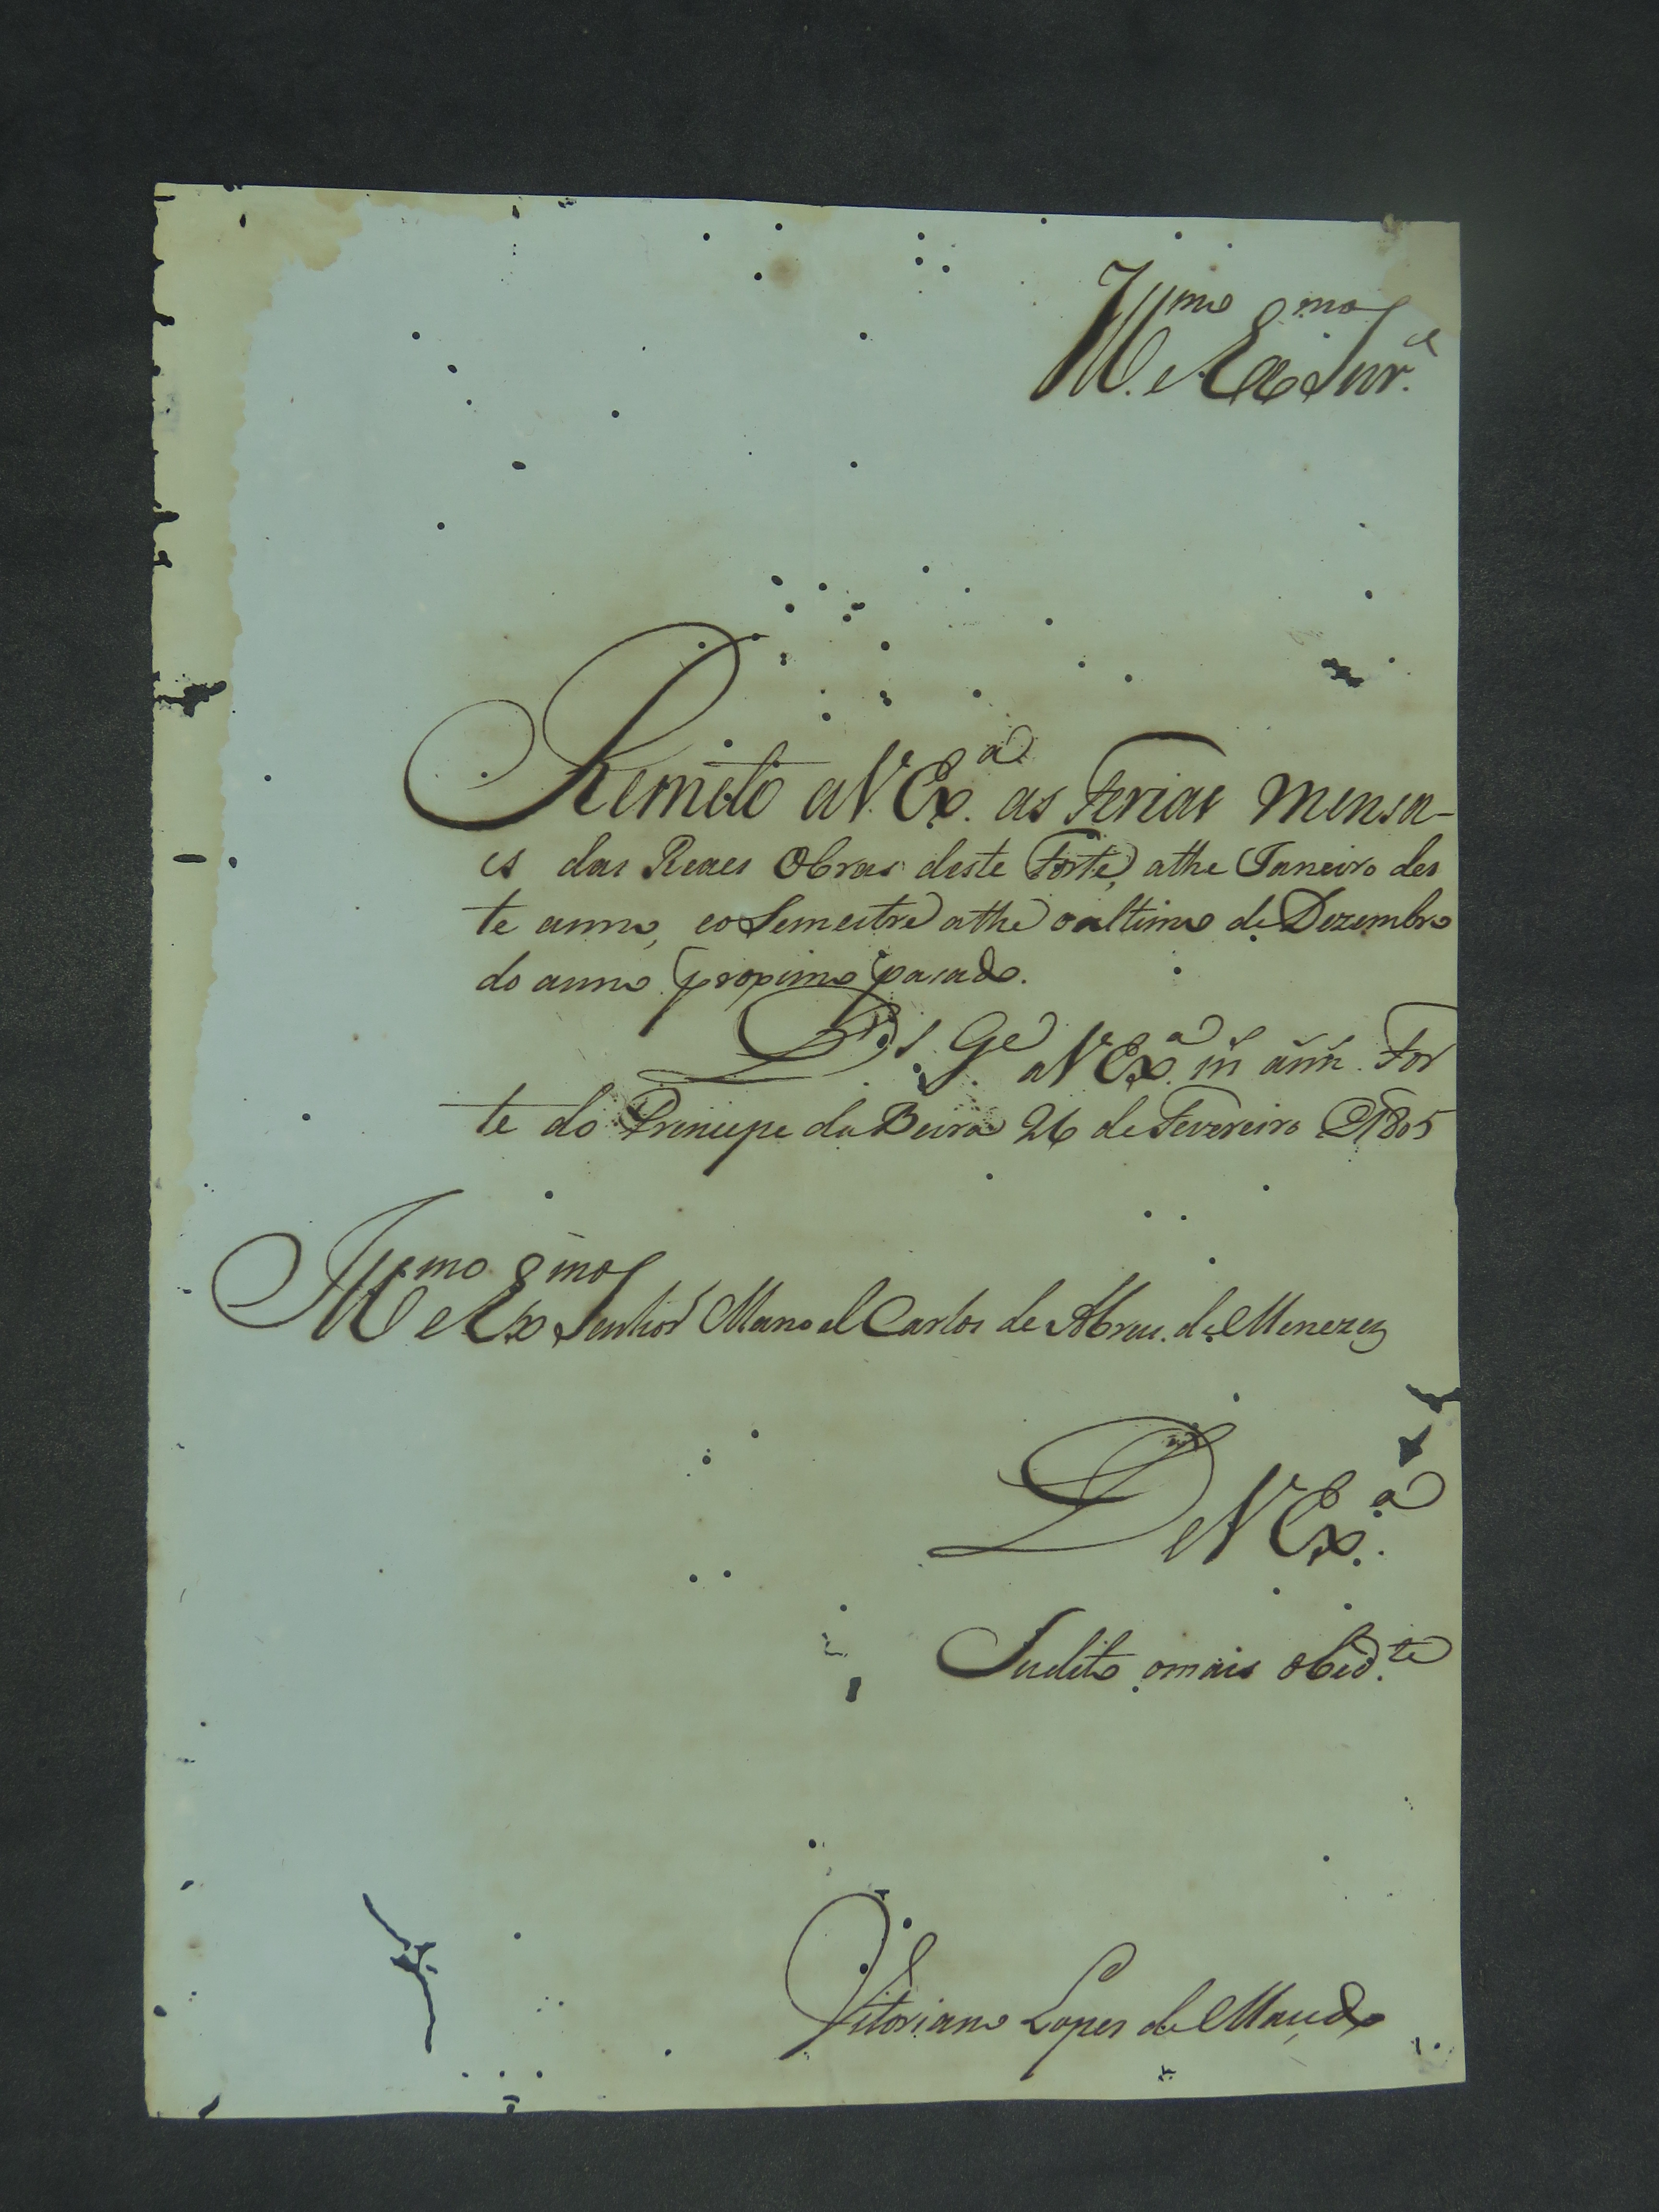 Illmo. e Exmo. Snr.
Remeto a V. Exa. as Ferias mensa-
es das Reaes Obras deste Forte, athe Janeiro des
te anno, eo Semestre athe o ultimo de Dezembro
do anno proximo pasado.
Ds. Ge. a V. Exa. ms. anns. For
te do Principe da Beira 26 de Fevereiro 1805
Illmo. e Exmo. Senhor Manoel Carlos de Abreu de Menezes
De V. Exa.
Sudito omais obedte.
Vitoriano Lopes de Maced.o